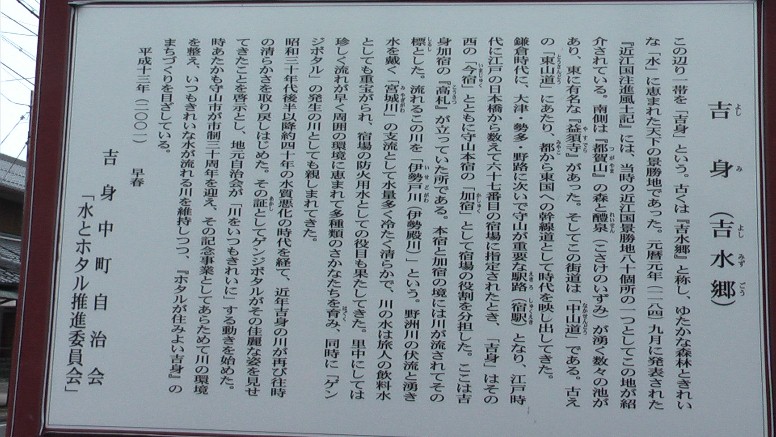 吉身（吉水郷）
よしみ よしみずごう
この辺り一帯を「吉身」という。古くは『吉水郷』と称し、ゆたかな森林ときれい
な「水」に恵まれた天下の景勝地であった。元暦元年（一一八四）九月に発表された
『近江国注進風土記』には、当時の近江国景勝地八十個所の一つとしてこの地が紹
介されている。南側は「都賀山」の森と醴泉（こさけのいずみ）が湧き、数々の池が
あり、東に有名な『益須寺』があった。そしてこの街道は「中山道」である。古え
の「東山道」にあたり、都から東国への幹線道として時代を映し出してきた。
鎌倉時代に、大津・勢多・野路に次いで守山が重要な駅路（宿駅）となり、江戸時
代に江戸の日本橋から数えて六十七番目の宿場に指定されたとき、「吉身」はその
西の「今宿」とともに守山本宿の「加宿」として宿場の役割を分担した。ここは吉
身加宿の『高札』が立っていた所である。本宿と加宿の境には川が流されてその
標とした。流れるこの川を「伊勢戸川（伊勢殿川）」という。野洲川の伏流と湧き
水を戴く「宮城川」の支流として水量多く冷たく清らかで、川の水は旅人の飲料水
としても重宝がられ、宿場の防火用水としての役目も果たしてきた。里中にしては
珍しく流れが早く周囲の環境に恵まれて多種類のさかなたちを育み、同時に『ゲン
ジボタル』の発生の川としても親しまれてきた。
昭和三十年代後半以降約四十年の水質悪化の時代を経て、近年吉身の川が再び往時
の清らかさを取り戻しはじめた。その証としてゲンジボタルがその佳麗な姿を見せ
てきたことを啓示とし、地元自治会が「川をいつもきれいに」する動きを始めた。
時あたかも守山市が市制三十周年を迎え、その記念事業としてあらためて川の環境
を整え、いつもきれいな水が流れる川を維持しつつ、『ホタルが住みよい吉身』の
まちづくりを目ざしている。
平成十三年（二〇〇一） 早春
吉身中町自治会
「水とホタル推進委員会」